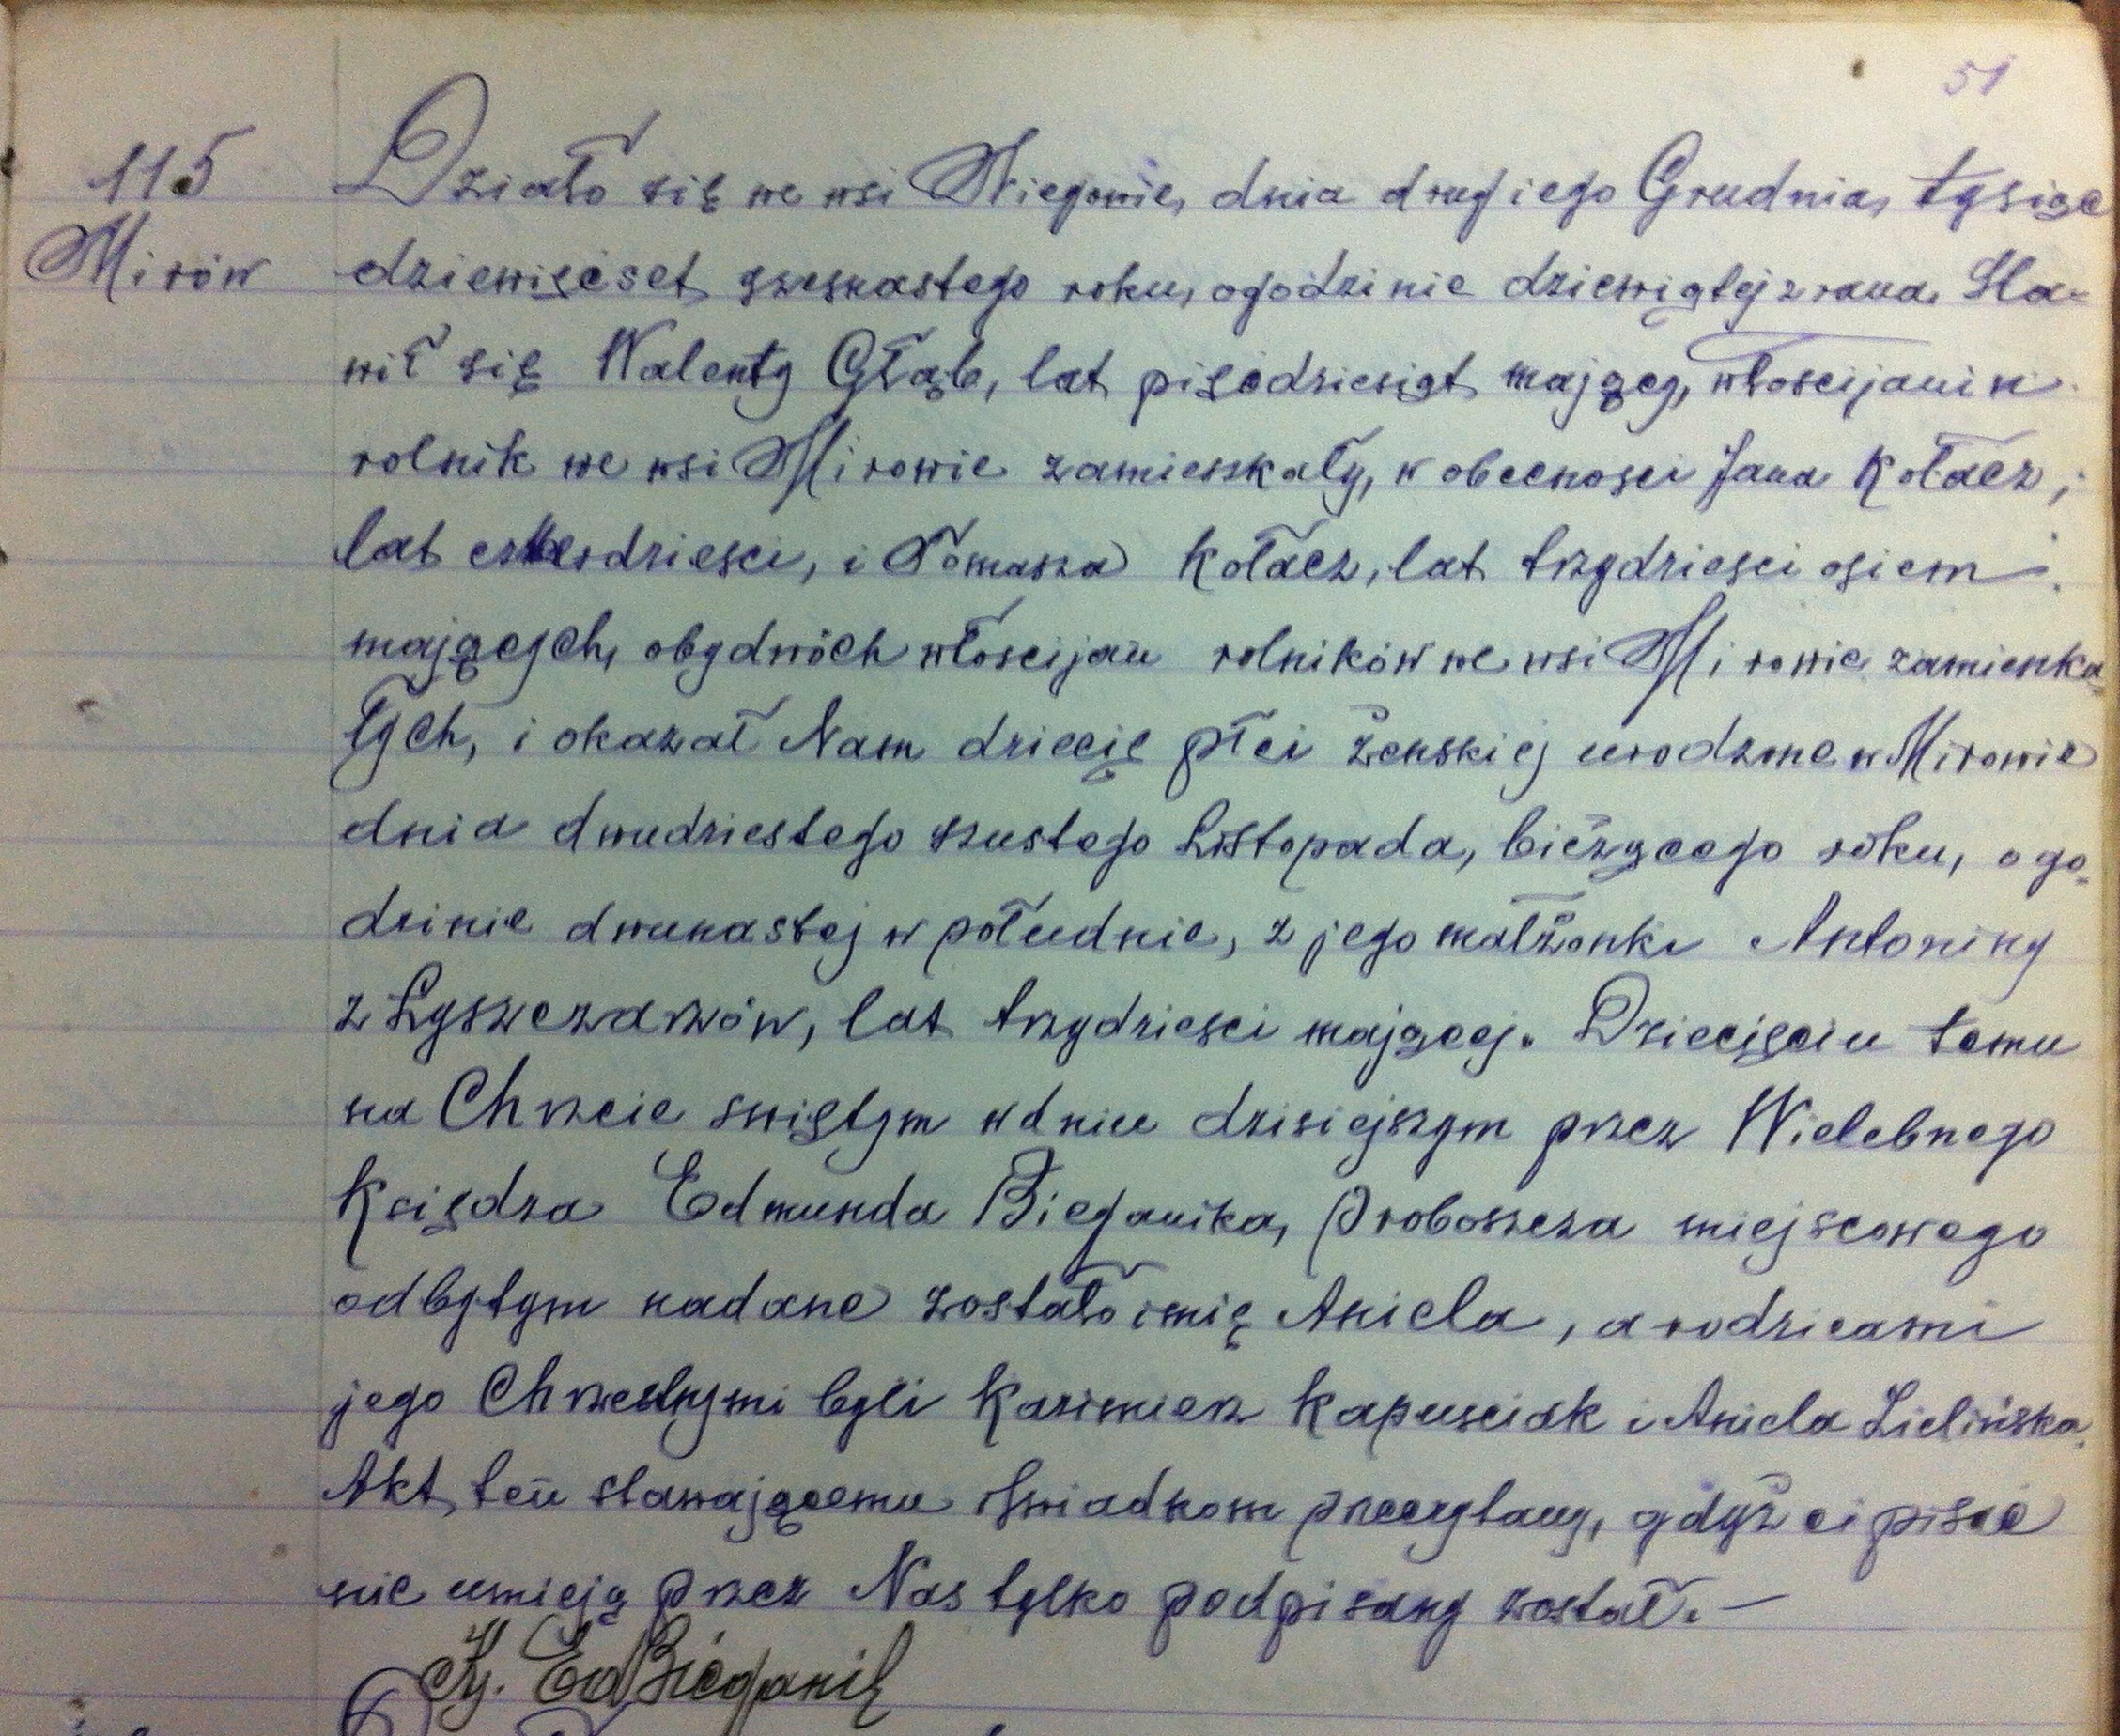 51
115
Mirów
Działo się we wsi Niegowie, dnia drugiego Grudnia, tysiąc
dziewięćset szesnastego roku, o godzinie dziewiątej zrana. Sta-
wił się Walenty Głąb, lat pięćdziesiąt mający, włościjanin
rolnik we wsi Mirowie zamieszkały, w obecnosci Jana Kołacz,
lat czterdziesci, i Tomasza Kołacz, lat trzydziesci osiem
mających, obydwóch włoscijan rolników we wsi Mirowie zamieszka
łych, i okazał Nam dziecię płci żenskiej urodzone w Mirowie
dnia dwudziestego szustego Listopada, bieżącego roku, o go-
dzinie dwunastej w południe, z jego małżonki Antoniny
z Łyszczarzów, lat trzydziesci mającej. Dziecięciu temu
na Chrzcie swiętym w dniu dzisiejszym przez Wielebnego
Księdza Edmunda Bieganika, Proboszcza miejscowego
odbytym nadane zostało imię Aniela, a rodzicami
jego Chrzestnymi byli Kazimierz Kapusciak i Aniela Zielińska.
Akt ten stawającemu i swiadkom przeczytany, gdyż ci pisać
nie umieją przez Nas tylko podpisany został. —
Ks. Ed Bieganik